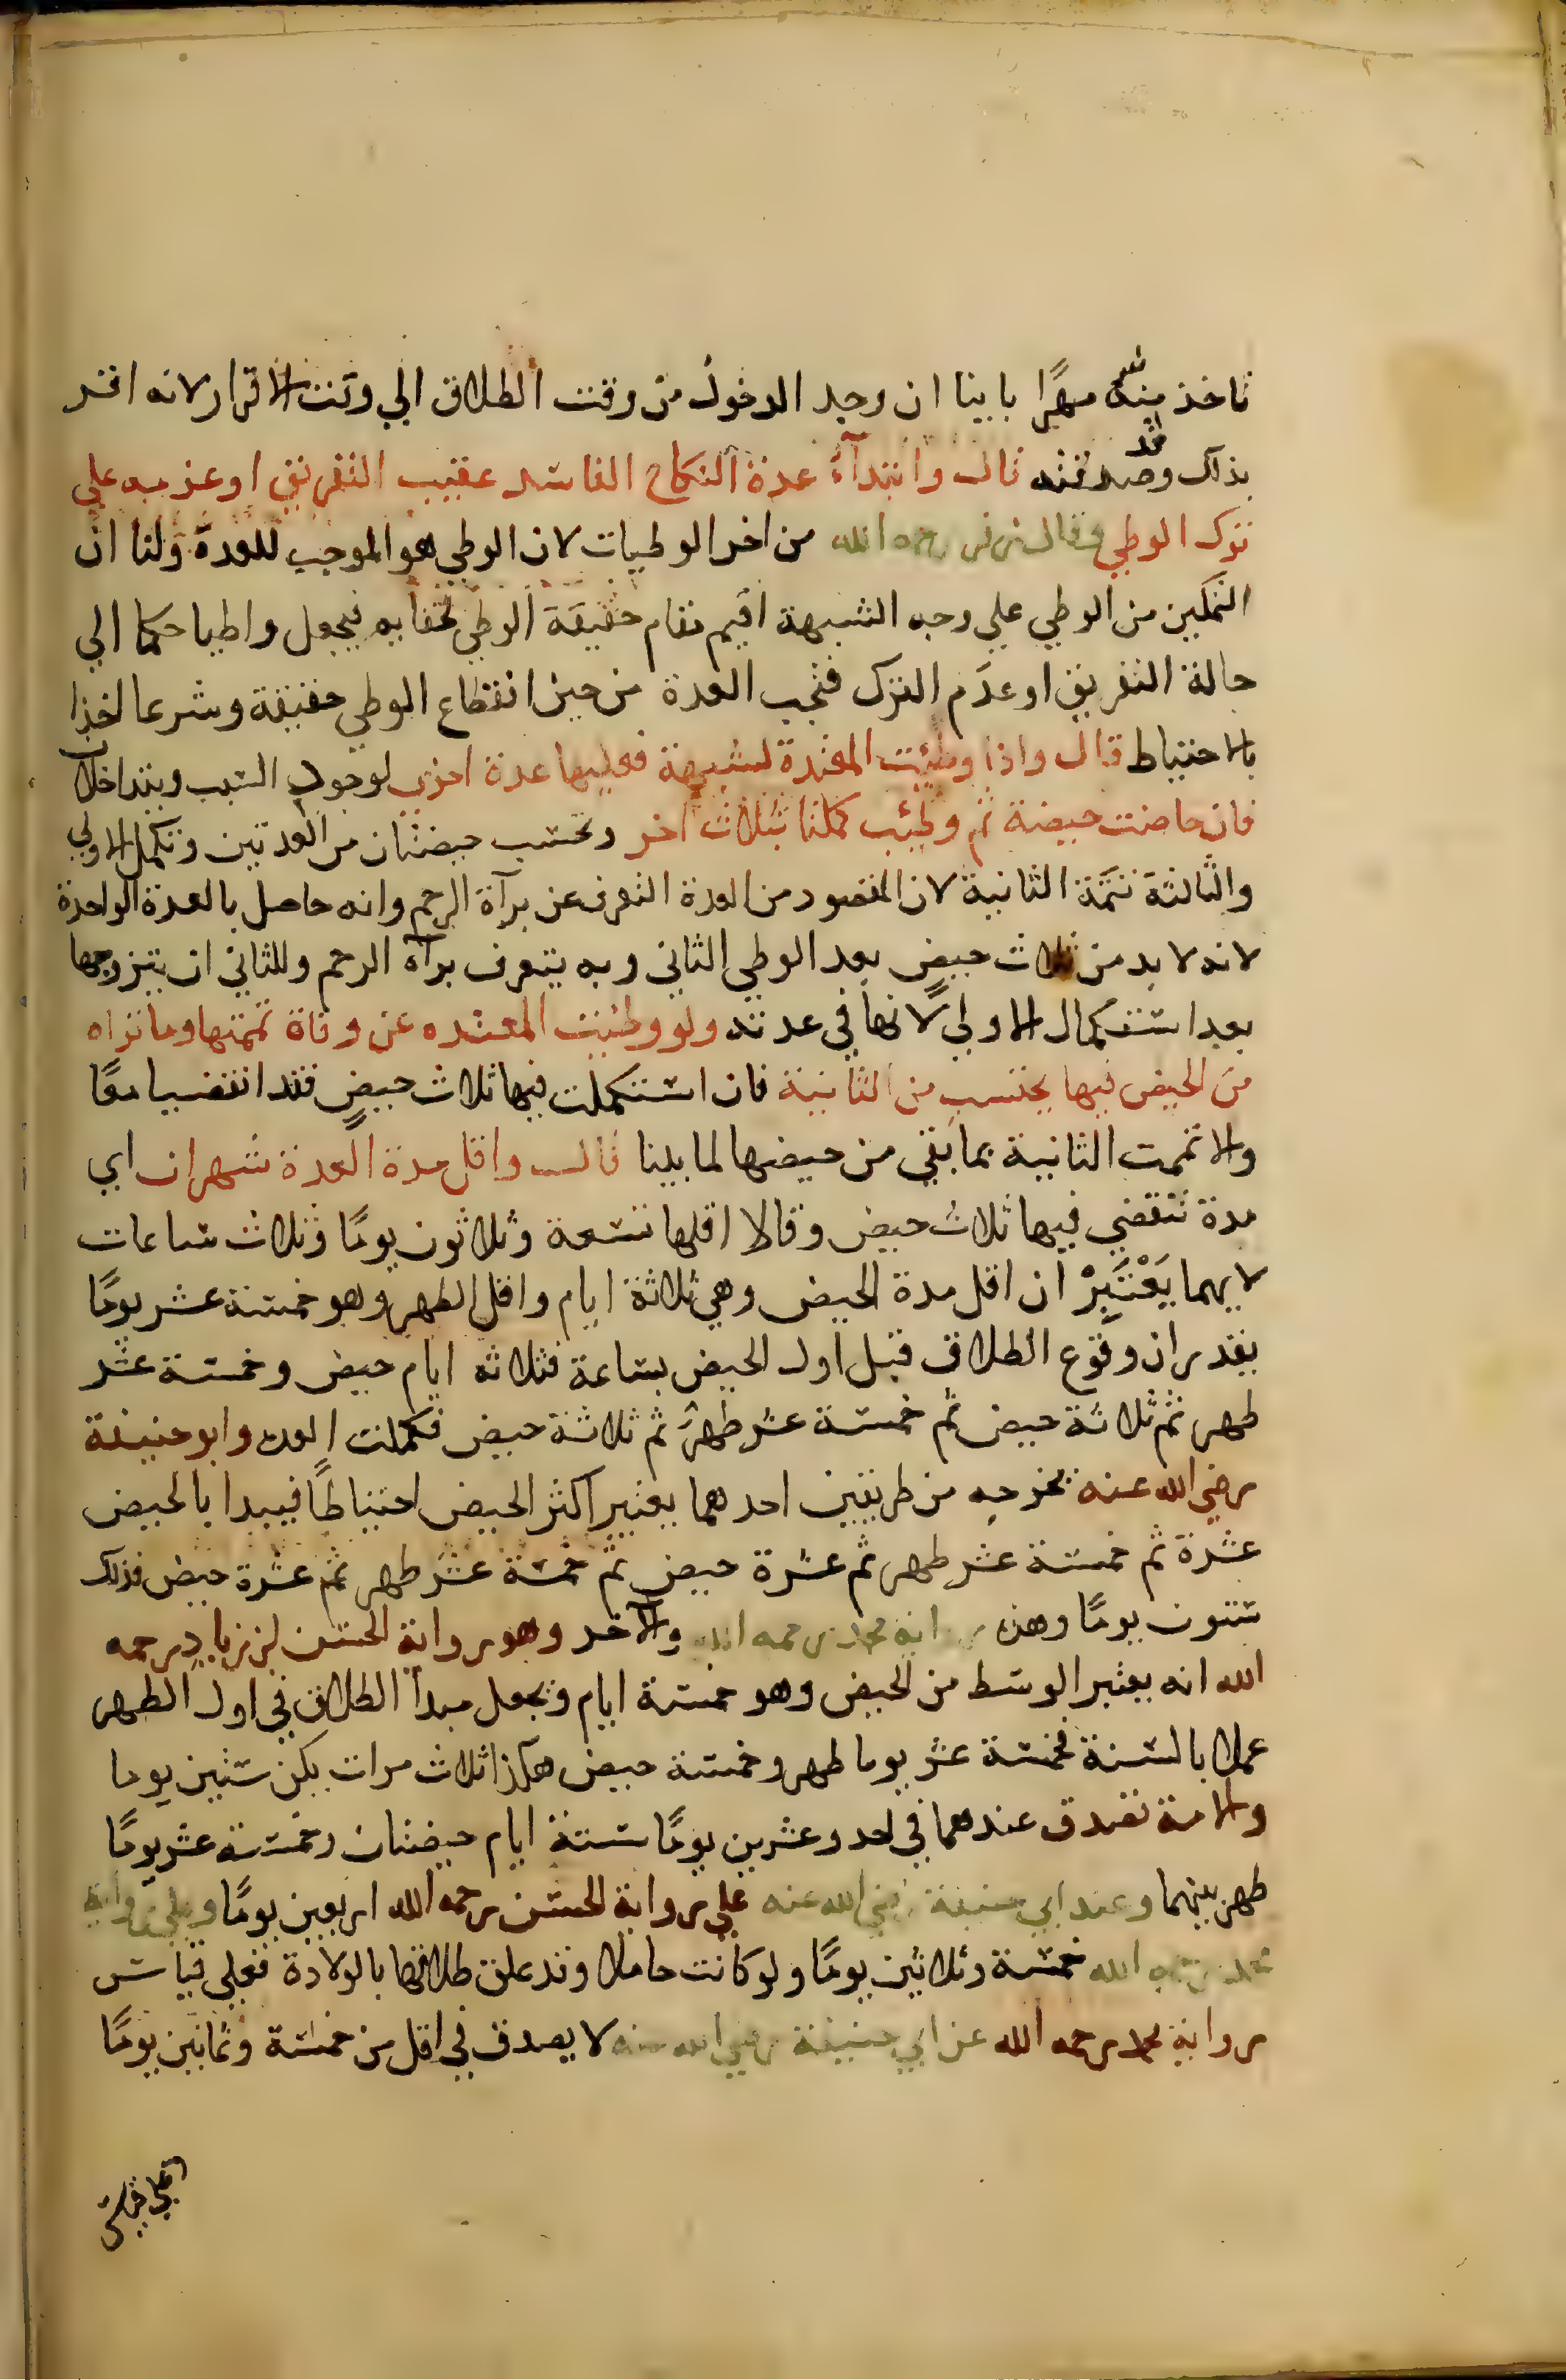 تاخذ منه مهرًا بابينا ان وجد الدخول من وقت الطلاق الي وقت الاقرار لانه اقر
بذلك وقد صدقته قال وابتدآء عدة النكاح الفاسد عقيب التفريق اوعزمه علي
ترك الوطي وقال زفر رحمه الله من اخر الوطيات لان الوطي هو الموجب للعدة ولنا ان
التمكين من الوطي علي وجه الشبهة اقيم مقام حقيقة الوطي لخفايه فيجعل واطيا حكما الي
حالة التفريق اوعدم الترك فتجب العدة من حين انقطاع الوطي حقيقة وشرعا اخذا
بالاحتياط قال واذا وطئت المعتدة لشبهة فعليها عدة اخرى لوجود السبب ويتداخلان
فان حاضت حيضة ثم وطئت كملتا بثلاث اخر وتحتسب حيضتان من العدتين وتكمل الاولي
والثالثة تتمة الثانية لان المقصود من العدة التعرف عن برآة الرحم وانه حاصل بالعدة الواحدة
لانه لا بد من ثلاث حيض بعد الوطي الثاني وبه يتعرف برآة الرحم وللثاني ان يتزوجها
بعد استكمال الاولى لانها في عدته ولو وطئت المعتده عن وفاة تممتها وما تراه
من الحيض فيها يحتسب من الثانية فان استكملت فيها ثلاث حيض فقد انقضيا معًا
والا تممت الثانية بما بقي من حيضها لما بينا قال واقل مدة العدة شهران اي
مدة تنقضي فيها ثلاث حيض وقالا اقلها تسعة وثلاثون يومًا وثلاث ساعات
لايهما يَعْتَبِرْ ان اقل مدة الحيض وهي ثلاثة ايام واقل الطهر وهو خمسة عشر يومًا
بقدر ان وقوع الطلاق قبل اول الحيض بساعة فثلاثه ايام حيض وخمسة عشر
طهر ثم ثلاثة حيض ثم خمسة عشر طهر ثم ثلاثة حيض فكملت العدة وابو حنيفة
رضي الله عنه يخرجه من طريقين احدهما يعتبر اكثر الحيض احتياطًا فيبدا بالحيض
عشرة ثم خمسة عشر طهر ثم عشرة حيض ثم خمسة عشر طهر ثم عشرة حيض فذلك
ستون يومًا وهذه رواية محمد رحمه الله والآخر وهو رواية الحسن بن زياد رحمه
الله انه يعتبر الوسط من الحيض وهو خمسة ايام ويجعل مبدأ الطلاق في اول الطهر
عملا بالسنة فخمسة عشر يوما طهر وخمسة حيض هكذا ثلاث مرات يكن ستين يوما
والامة تصدق عندهما في احد وعشرين يومًا ستة ايام حيضتان وخمسة عشر يومًا
طهر بينهما وعند ابي حنيفة رضي الله عنه علي رواية الحسن رحمه الله اربعين يومًا وعلي رواية
محمد رحمه الله خمسة وثلاثين يومًا ولو كانت حاملا وقد علق طلاقها بالولادة فعلي قياس
رواية محمد رحمه الله عن ابي حنيفة رضي الله عنه لا يصدق في اقل من خمسة وثمانين يومًا
وعلي قياس